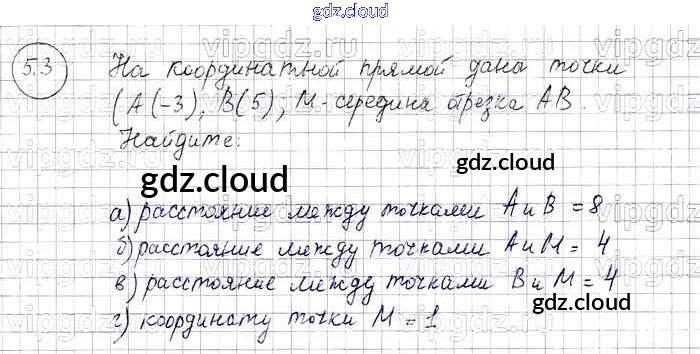 gdz.cloud
5.3
На координатной прямой дана точки
(А(-3), В(5), М-середина отрезка АВ.
Найдите:
gdz.cloud
gdz.cloud
а) расстояние между точками А и В = 8
б) расстояние между точками А и М = 4
в) расстояние между точками В и М = 4
gdz.cloud
г) координату точки М = 1
gdz.cloud